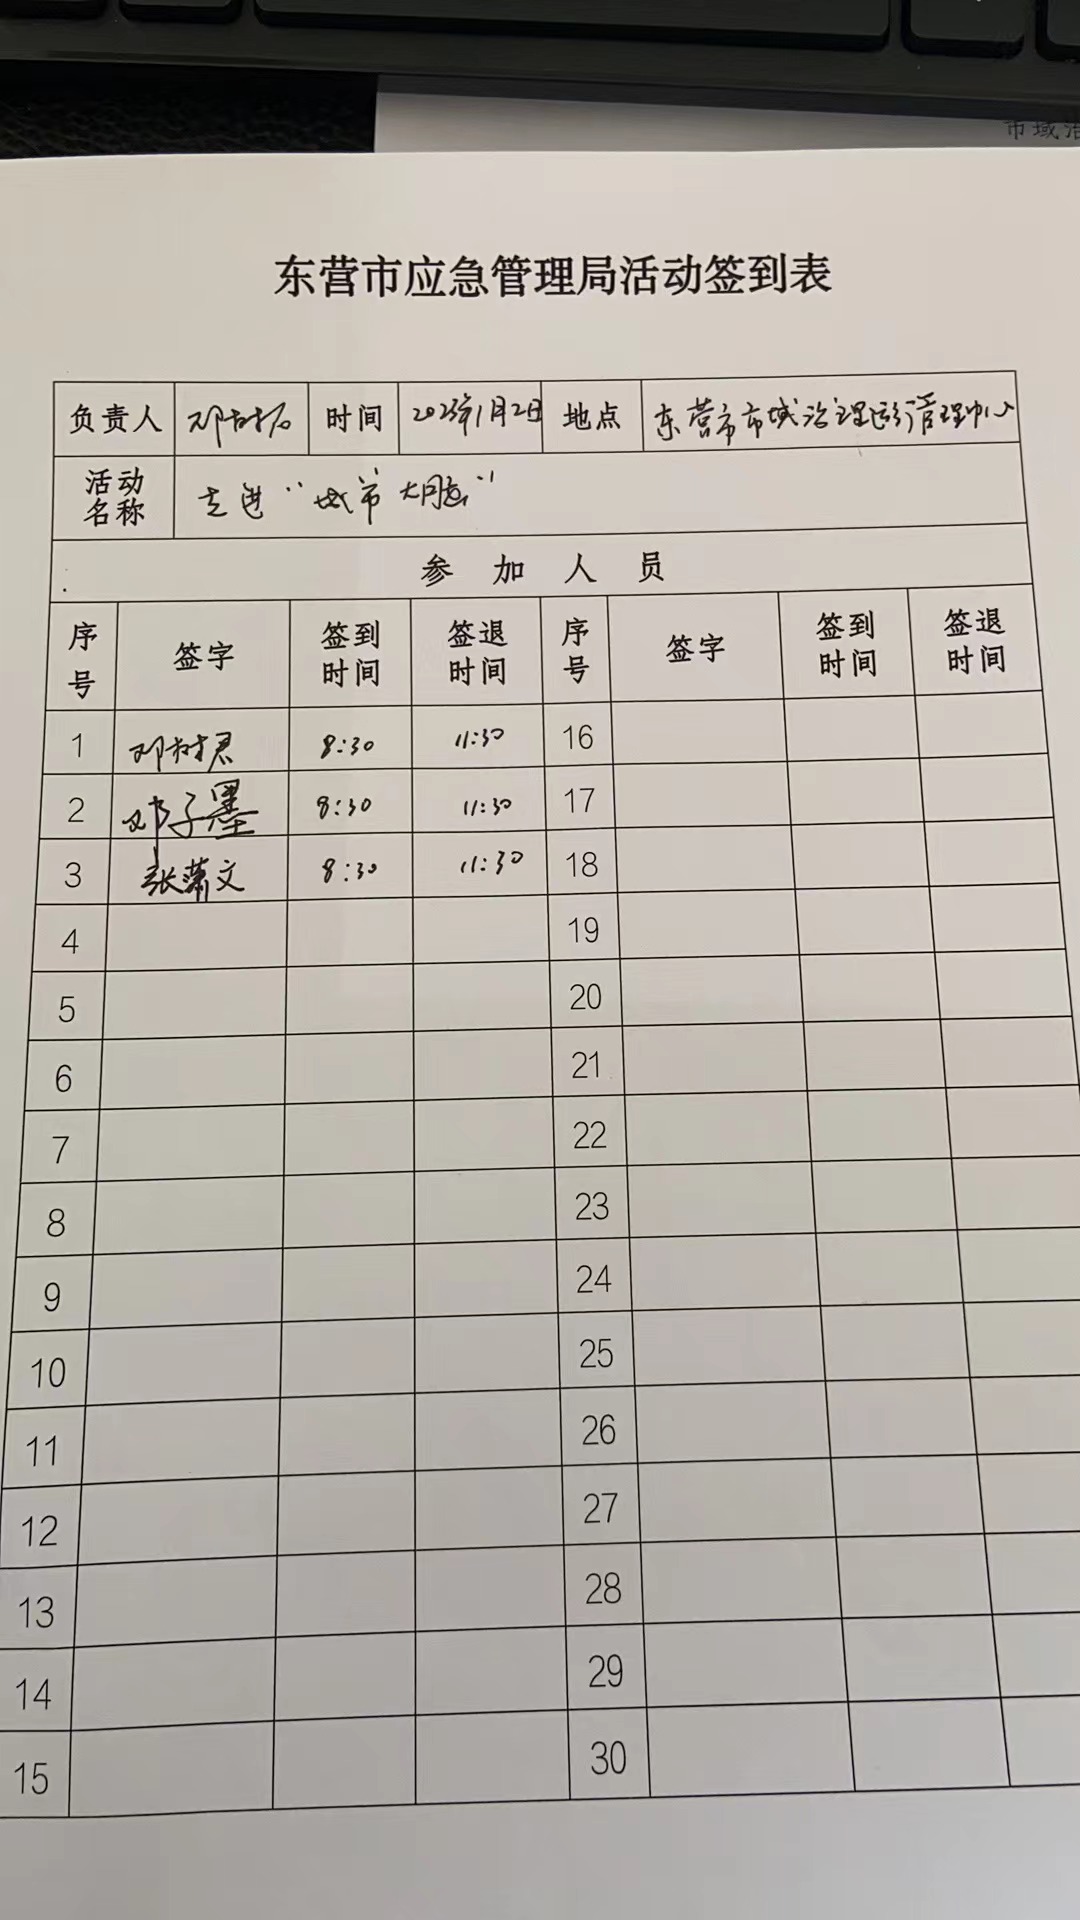 市域治
东营市应急管理局活动签到表
负责人 邓树 时间 2023年1月2日 地点 东营市市域治理运行管理中心
活动名称 走进“城市大脑”
参加人员
序号 签字 签到时间 签退时间 序号 签字 签到时间 签退时间
1 邓树君 8:30 11:30 16
2 邓子墨 8:30 11:30 17
3 张萧文 8:30 11:30 18
4 19
5 20
6 21
7 22
8 23
9 24
10 25
11 26
12 27
13 28
14 29
15 30